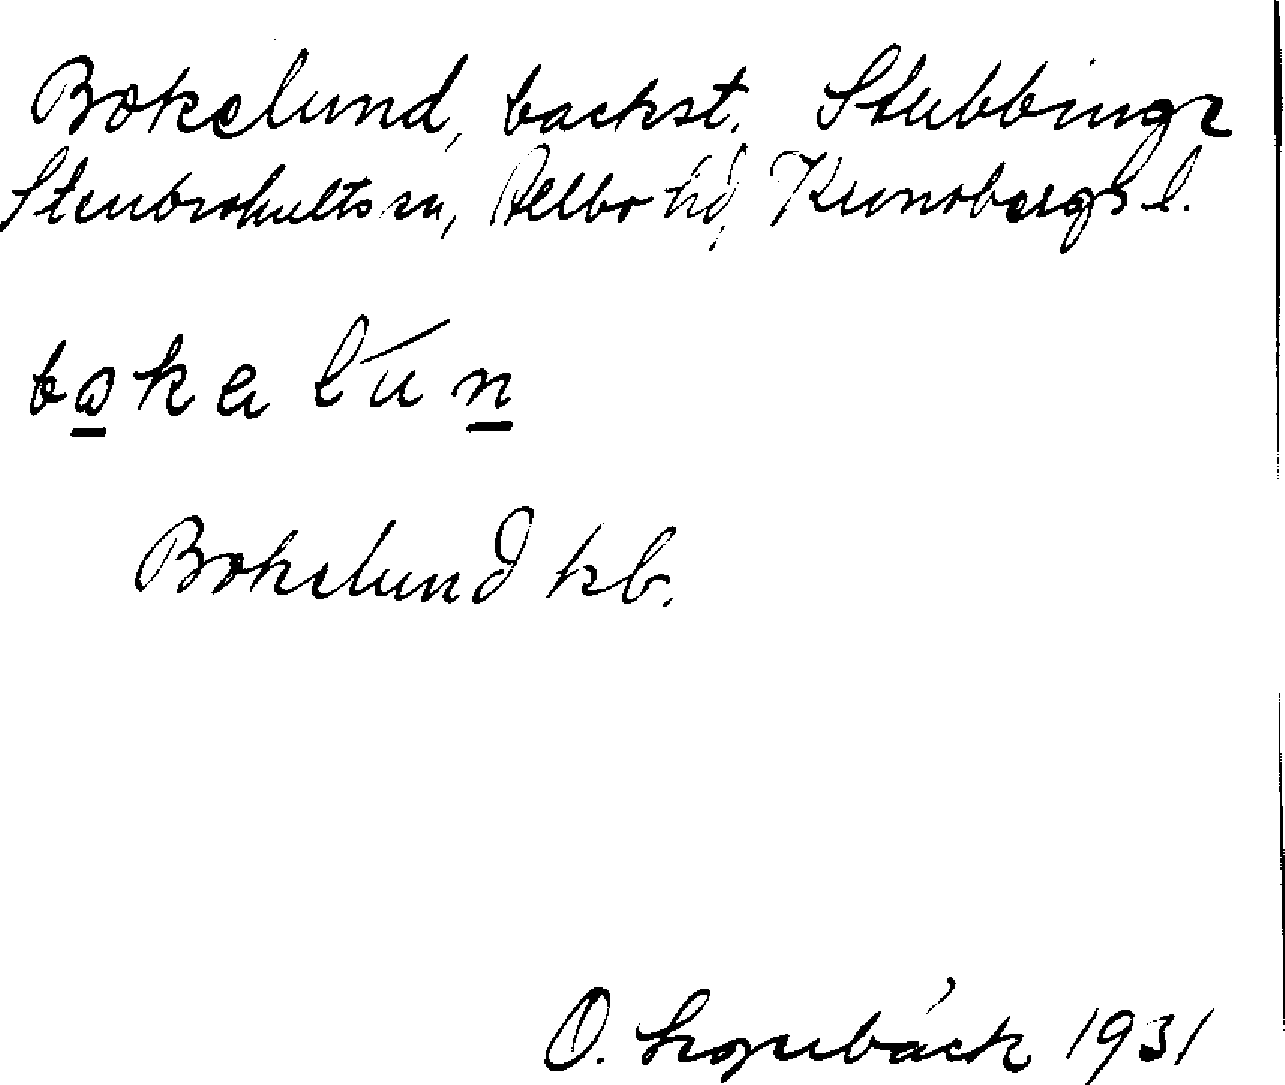 Bokelund, backst. Stubbinge
Stenbrohults sn, Allbo hd, Kronobergs l.
bokelun
Bokelund kb.
O. 1931